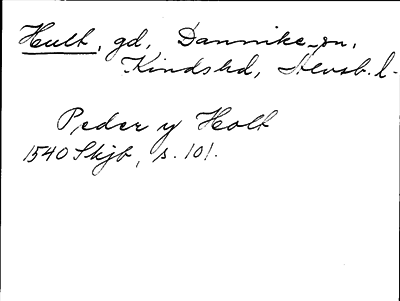 Hult, gd, Dannike sn,
Kindshd, Älvsb. l.
Peder y Holt
1540 Skjb, s. 101.